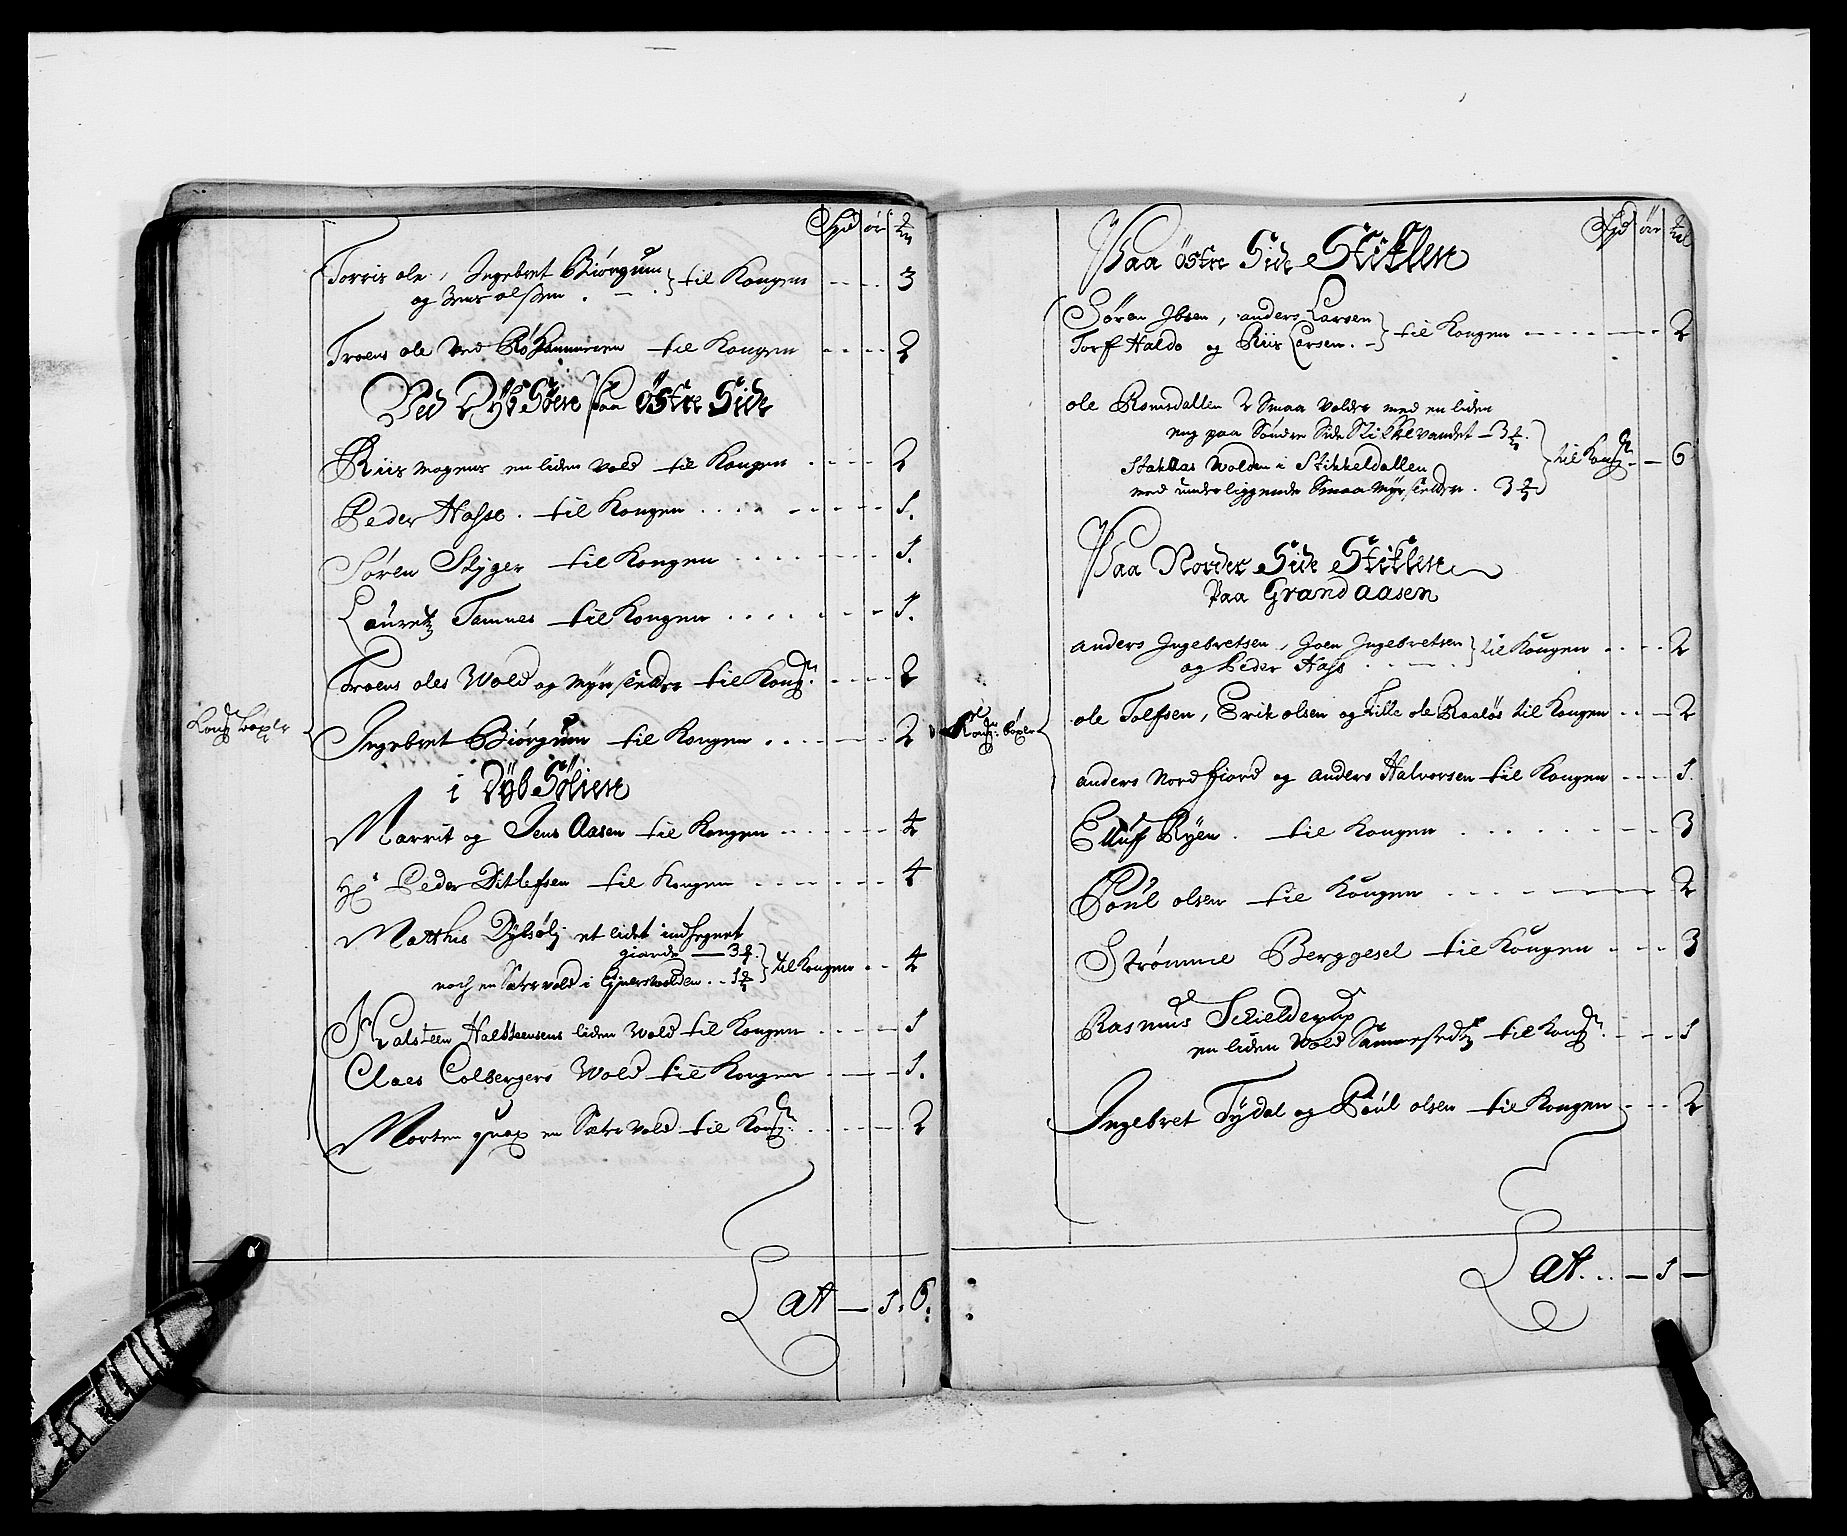 Spd ör
Torris ole, Ingebret Biörgum
og Jens olssen . – . til Kongen ---- 3
Troens ole Ved til Kongen ---- 2
Ved Dÿb Söen Paa östre Side
Riis mogens en liden Vold til Kongen .--- 2
Peder Hasse . til Kongen ........ 1.
Sören Styger til Kongen ....... 1.
Lauretz Tamnes til Kongen ...... 1.
Troens oles Wold og Myr sletter til Kong: ---- 2
Kong: böxler Ingebret Biörgum til Kongen ...... 2
i Dÿb Sölien
Marrit og Jens Aasen til Kongen ...... 4
Hr Peder Ditlefsen til Kongen ...... 4
Matthis Dÿbsölj et lidet indhegnet
giærde — 3
noch en Sæter vold i .. 1 til Kongen .. 4
Halsteen Halsteensens liden Wold til Kongen .... 1
Claes Colbergers Wold til Kongen .--- 1.
Morten qvax en Sæter Vold til Kong: ..... 2
Lat — 1. 6.
Paa östre Side Stiklen
Spd ör
Sören Ibsen, anders Larsen
Torf Haldo og Riis Larsen. – til Kongen ------ 2
ole Romsdallen 2 Smaa Volder med en liden
eng paa Söndre Side Stikkelvandet – 3
Wolden i Stikkeldallen til Kong: -- 6
med underliggende Smaa Myr sletter . 3
Paa Norder Side Stiklen
Paa Grandaasen
anders Ingebretsen, Joen Ingebretsen
og Peder Hass til Kongen .... 2
Kong: böxler ole Tolfsen, Erik olsen og Lille ole Raaløs til Kongen .. – 2
anders Nordfiord og anders Halvorsen til Kongen ---- 1.
Elluf Ryen . til Kongen ....... 3
Poul olsen til Kongen ....... 2
Strömme Berggesel til Kongen .... 3
Rasmus Schielderup
en liden Wold Sammestedtz til Kong: .... 1
Ingebret Tÿdal og Poul olsen til Kongen ---- 2
Lat... — 1 —